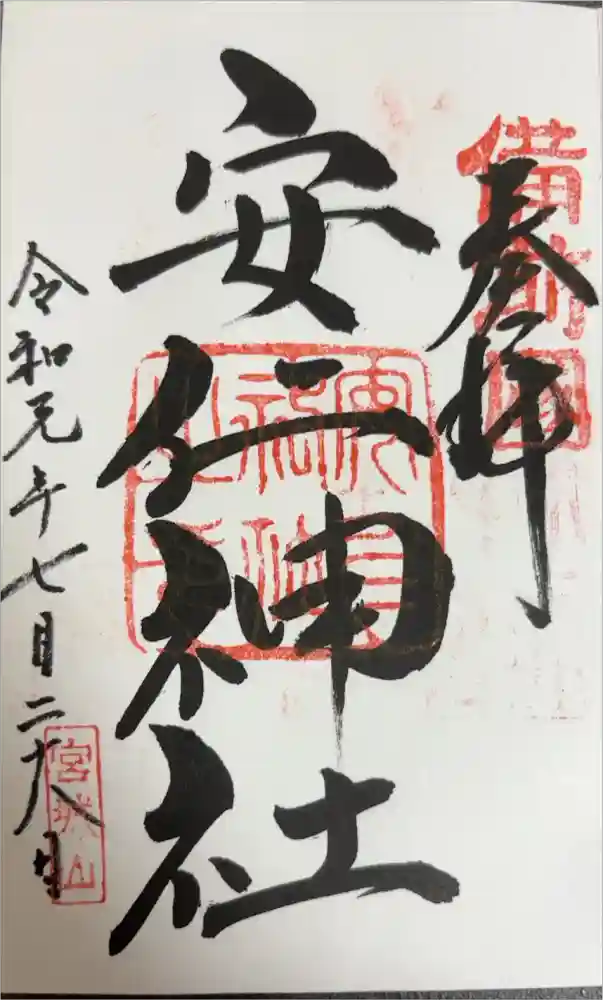 備前國
奉拝
安仁神社
令和元年七月二十八日
宮城山